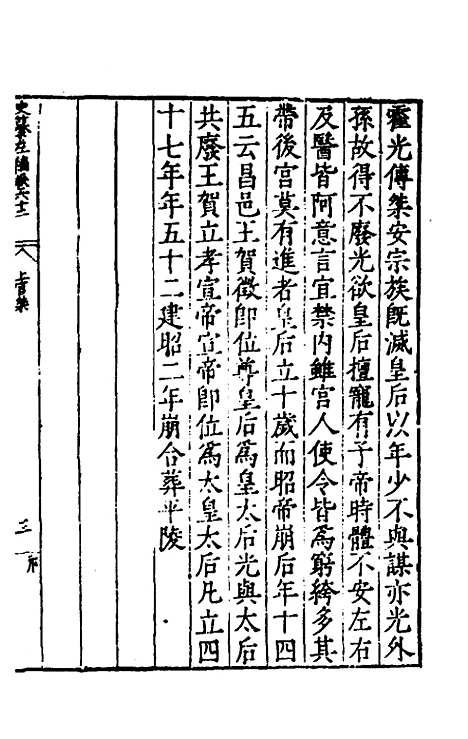 霍光傳桀安宗族既滅皇后以年少不與謀亦光外
孫故得不廢光欲皇后擅寵有子帝時體不安左右
及醫皆阿意言宜禁內雖宮人使令皆爲窮絝多其
帶後宮莫有進者皇后立十歲而昭帝崩后年十四
五云昌邑王賀徵卽位尊皇后爲皇太后光與太后
共廢王賀立孝宣帝宣帝卽位爲太皇太后凡立四
十七年年五十二建昭二年崩合葬平陵
史纂左編卷六十三
上官桀
三